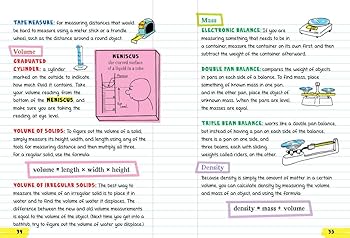 TAPE MEASURE: for measuring distances that would
be hard to measure using a meter stick or a trundle
wheel, such as the distance around a round object
Volume
GRADUATED
CYLINDER: a cylinder
marked on the outside to indicate
how much fluid it contains. Take
your volume reading from the
bottom of the MENISCUS, and
make sure you are taking the
reading at eye level.
MENISCUS
the curved surface
of a liquid in a tube
VOLUME OF SOLIDS: To figure out the volume of a solid,
simply measure its height, width, and length using any of the
tools for measuring distance and then multiply all three.
For a regular solid, use the formula:
volume = length × width × height
VOLUME OF IRREGULAR SOLIDS: The best way to
measure the volume of an irregular solid is to place it in
water and to find the volume of water it displaces. The
difference between the new and old volume measurements
is equal to the volume of the object. (Next time you get into a
bathtub, try to figure out the volume of water you displace.)
34
Mass
ELECTRONIC BALANCE: If you are
measuring something that needs to be in
a container, measure the container on its own first and then
subtract the weight of the container from the total weight.
DOUBLE PAN BALANCE: compares the weight of objects
in pans on each side of a balance. To find mass, place
something of known mass in one pan,
and in the other pan, place the object
of unknown mass. When the pans are level,
the masses are equal.
TRIPLE BEAM BALANCE: works like a double pan balance,
but instead of having a pan on each side of the balance,
there is a pan on one side, and
three beams, each with sliding
weights called riders, on the other.
Density
Because density is simply the amount of matter in a certain
volume, you can calculate density by measuring the volume
and mass of an object, and using the formula:
density = mass ÷ volume
35